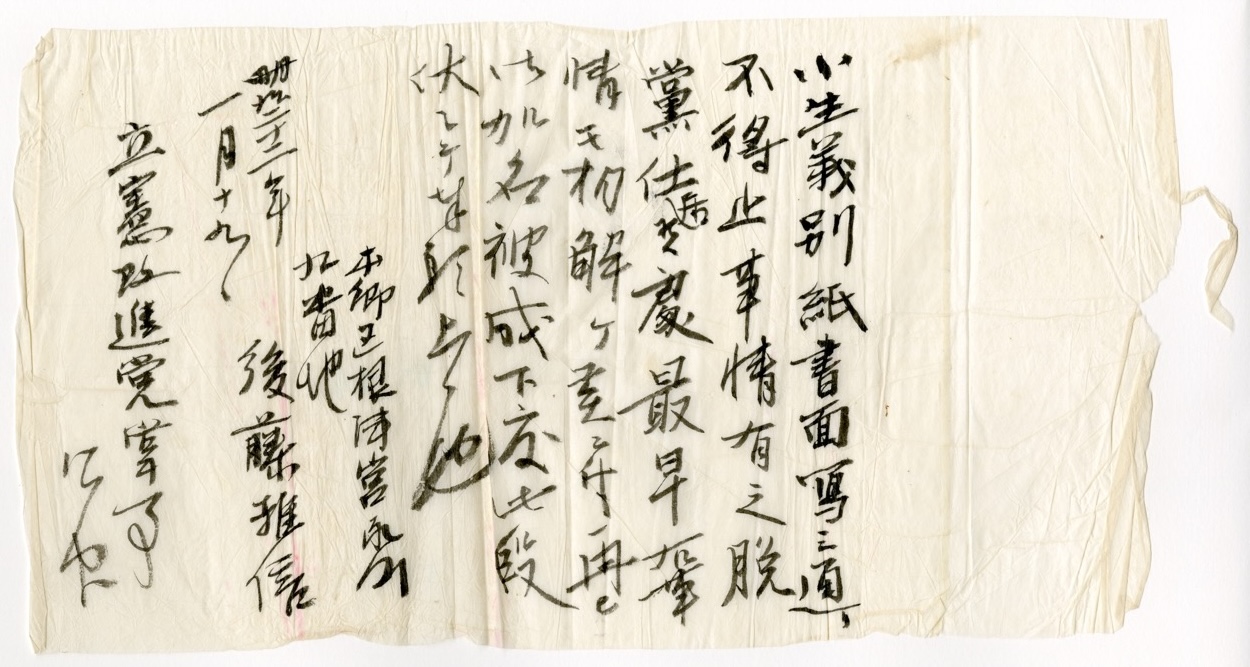 小生義別紙書面写之通
不得止事情有之脱
黨仕居候處最早右事
情も相解ケ候ニ付再ビ
御加名被成下度此段
伏テ奉願上候也
本郷区根津宮永町
九番地
明治二十二年
一月十九日
後藤雅信
立憲改進党掌事
御中